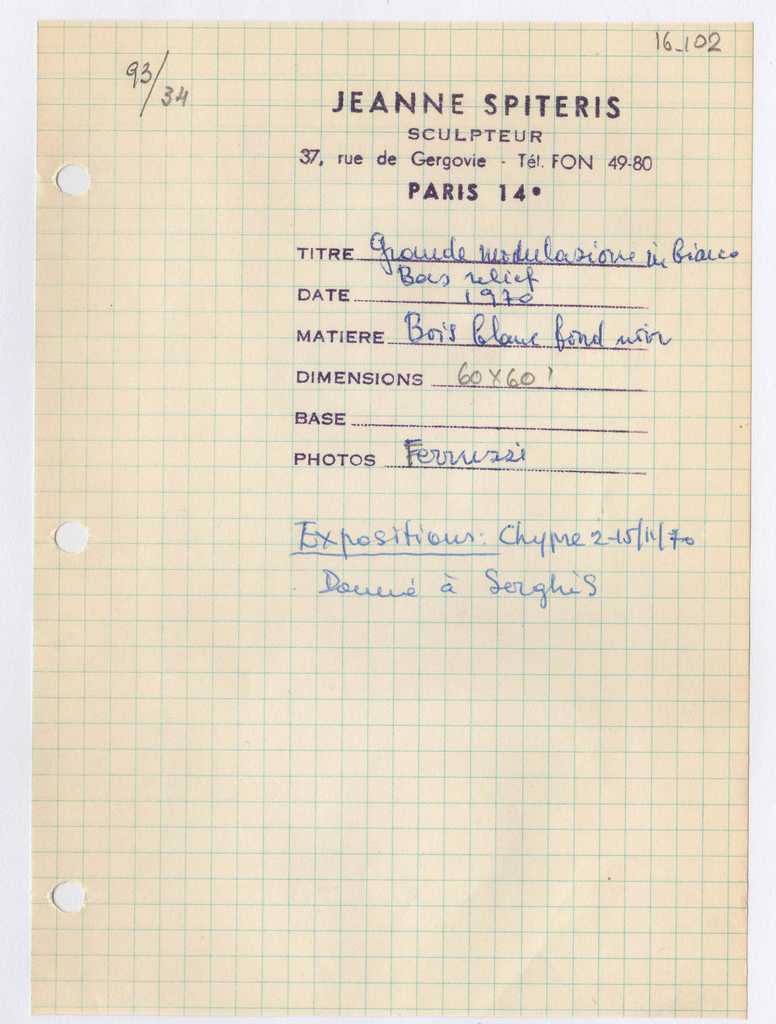 16_102
93/34
JEANNE SPITERIS
SCULPTEUR
37, rue de Gergovie - Tél. FON 49-80
PARIS 14e
TITRE Grande modulazione in bianco
Bas relief
DATE 1970
MATIERE Bois blanc fond noir
DIMENSIONS 60X60
BASE
PHOTOS Ferruzzi
Expositions: Chypre 2-15/11/70
Donné à Serghis